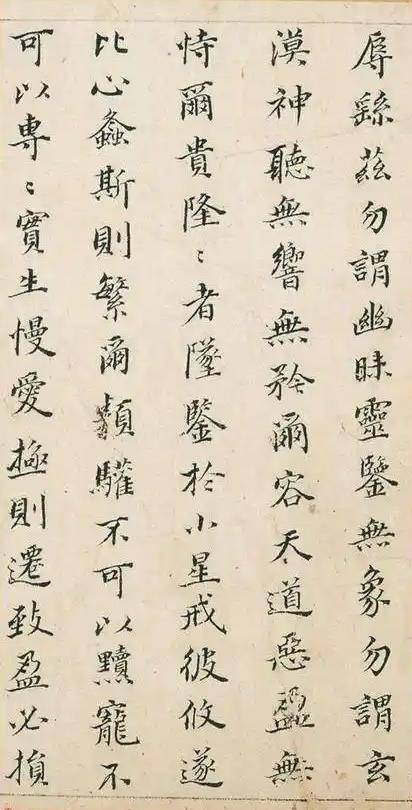 辱繇茲勿謂幽昧靈鑒無象勿謂玄
漠神聽無響無矜爾容天道惡盈無
恃爾貴隆〻者墜鑒於小星戒彼攸遂
比心螽斯則繁爾類驩不可以黷寵不
可以專〻實生慢愛極則遷致盈必損